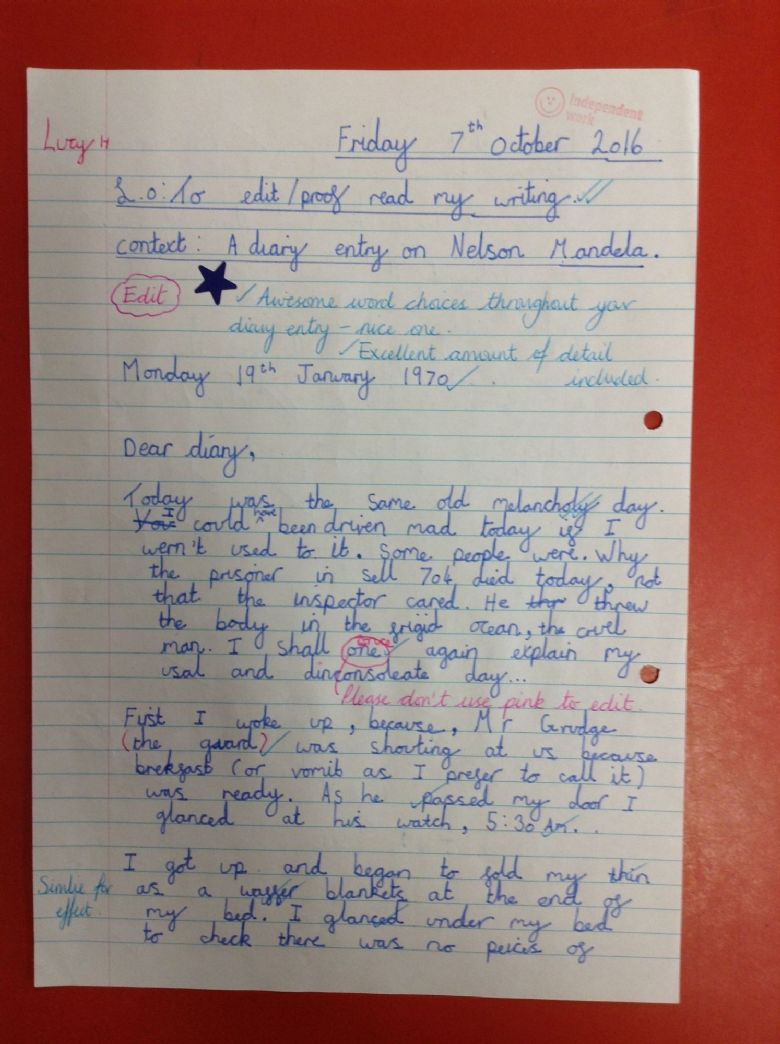 independent
work
Lucy H
Friday 7th October 2016
L.o: To edit/proof read my writing.
context: A diary entry on Nelson Mandela.
Edit
Awesome word choices throughout your
diary entry - nice one.
Excellent amount of detail
included.
Monday 19th January 1970
Dear diary,
Today was the same old melancholy day.
You I could have been driven mad today if I
wern't used to it. Some people were. Why
the prisoner in sell 704 died today, not
that the inspector cared. He thr threw
the body in the frigid ocean, the cruel
man. I shall one once again explain my
usal and dinconsoleate day...
Please don't use pink to edit.
First I woke up, because, Mr Grudge
(the guard) was shouting at us because
brekfast (or vomib as I prefer to call it)
was ready. As he passed my door I
glanced at his watch, 5:30 Am.
I got up and began to fold my thin
as a waffer blankets at the end of
Simlie for
effect.
my bed. I glanced under my bed
to check there was no peices of